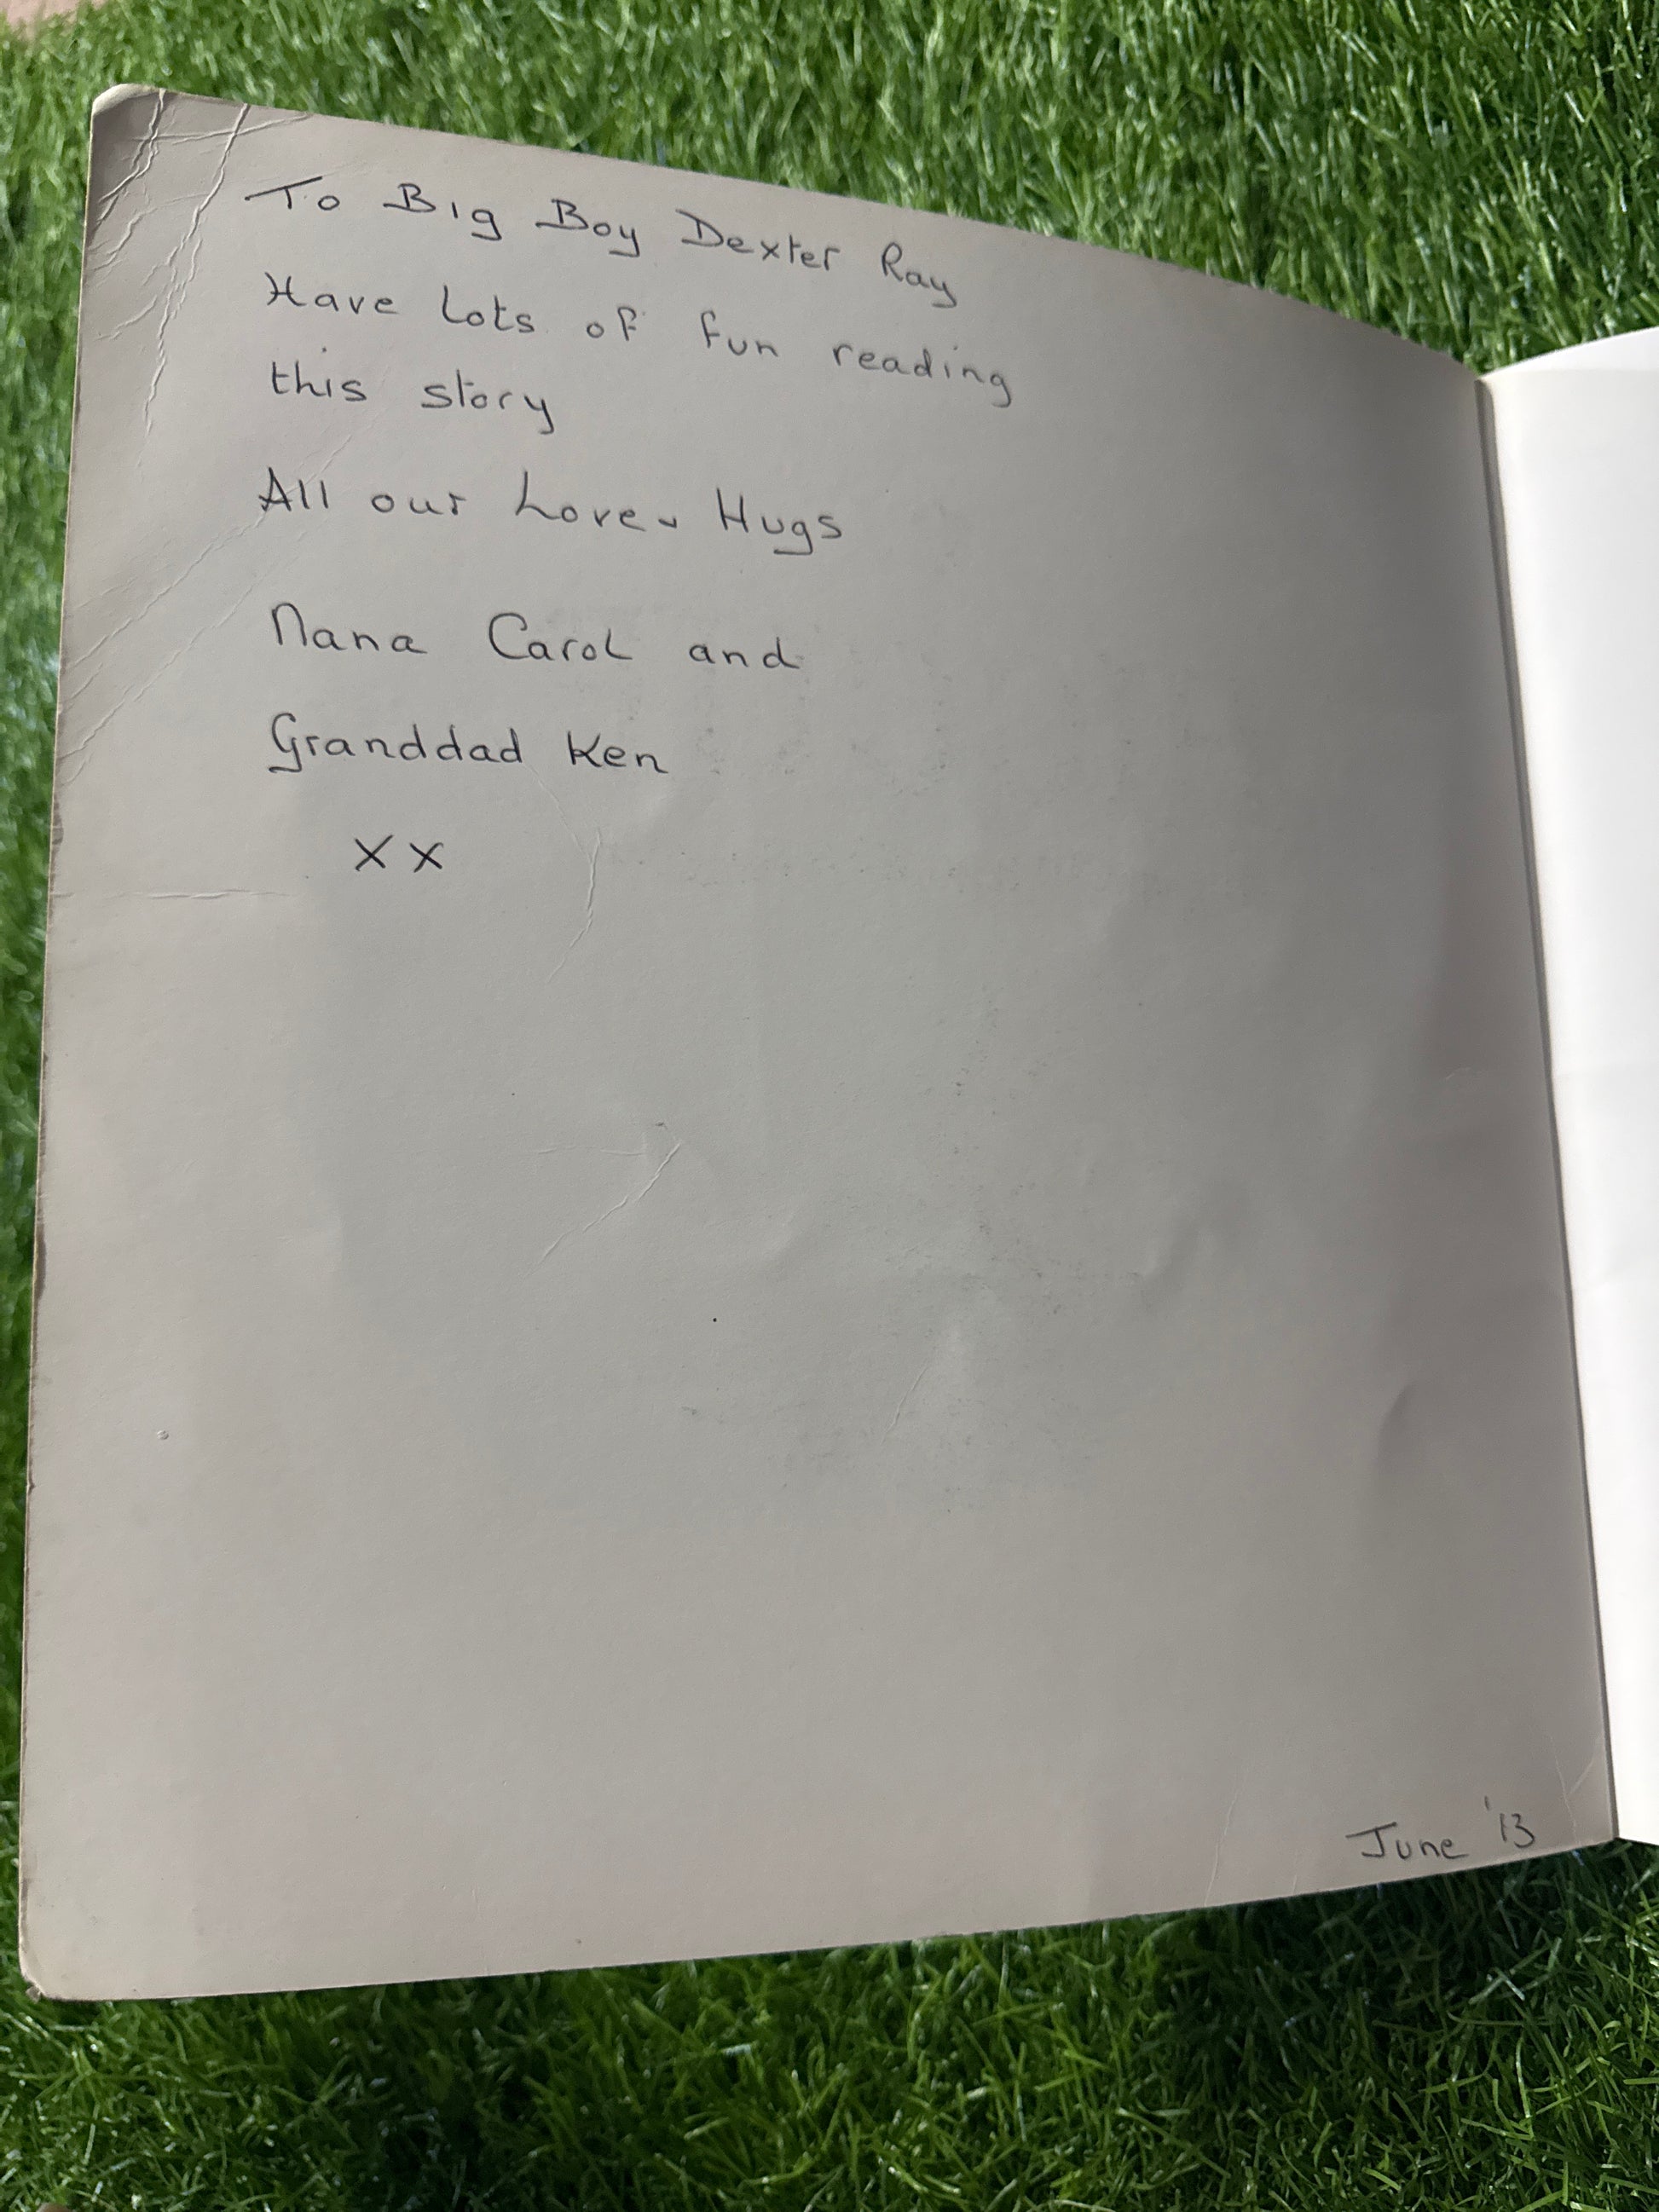 To Big Boy Dexter Ray
Have Lots of fun reading
this story
All our Love Hugs
Nana Carol and
Granddad Ken
xx
June '13